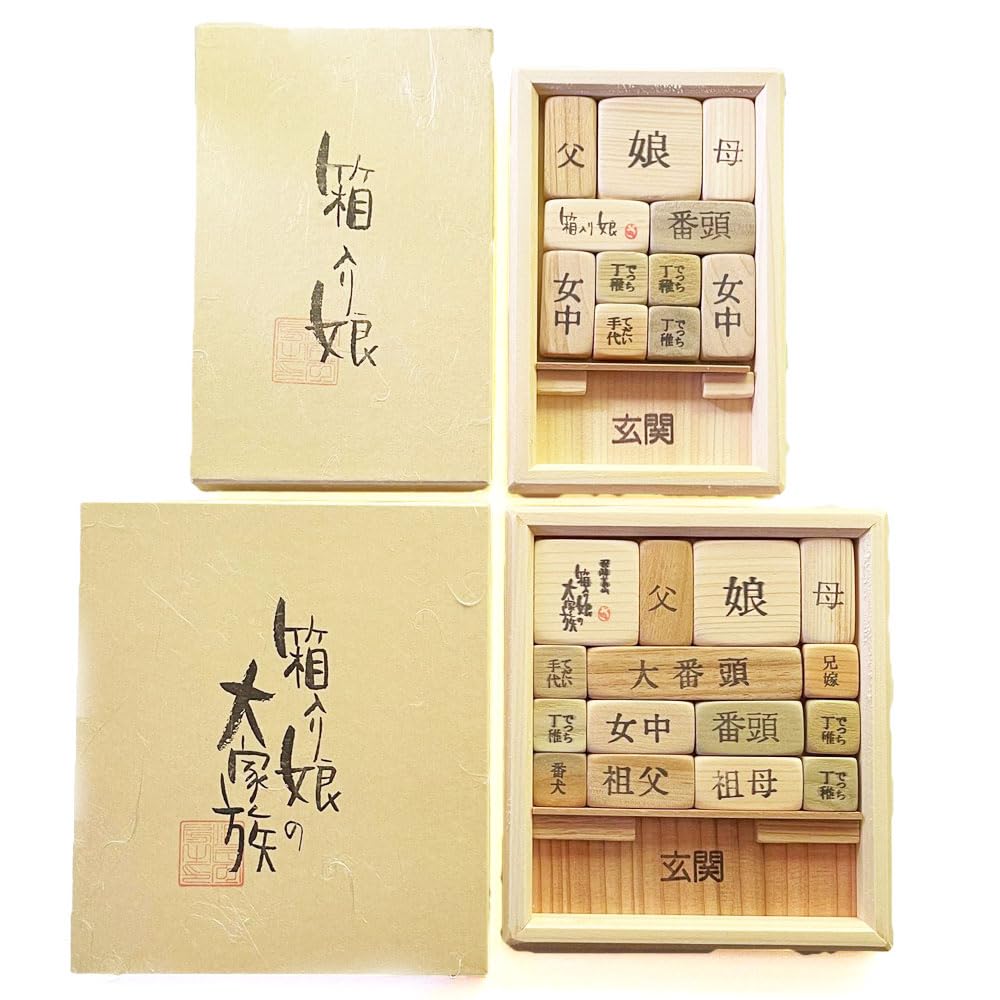 箱入り娘
父
娘
母
箱入り娘
番頭
女中
丁稚 でっち
丁稚 でっち
女中
手代 てだい
丁稚 でっち
玄関
箱入り娘の
大家族
箱入り娘の
大家族
父
娘
母
手代 てだい
大番頭
兄嫁
丁稚 でっち
女中
番頭
丁稚 でっち
番犬
祖父
祖母
丁稚 でっち
玄関